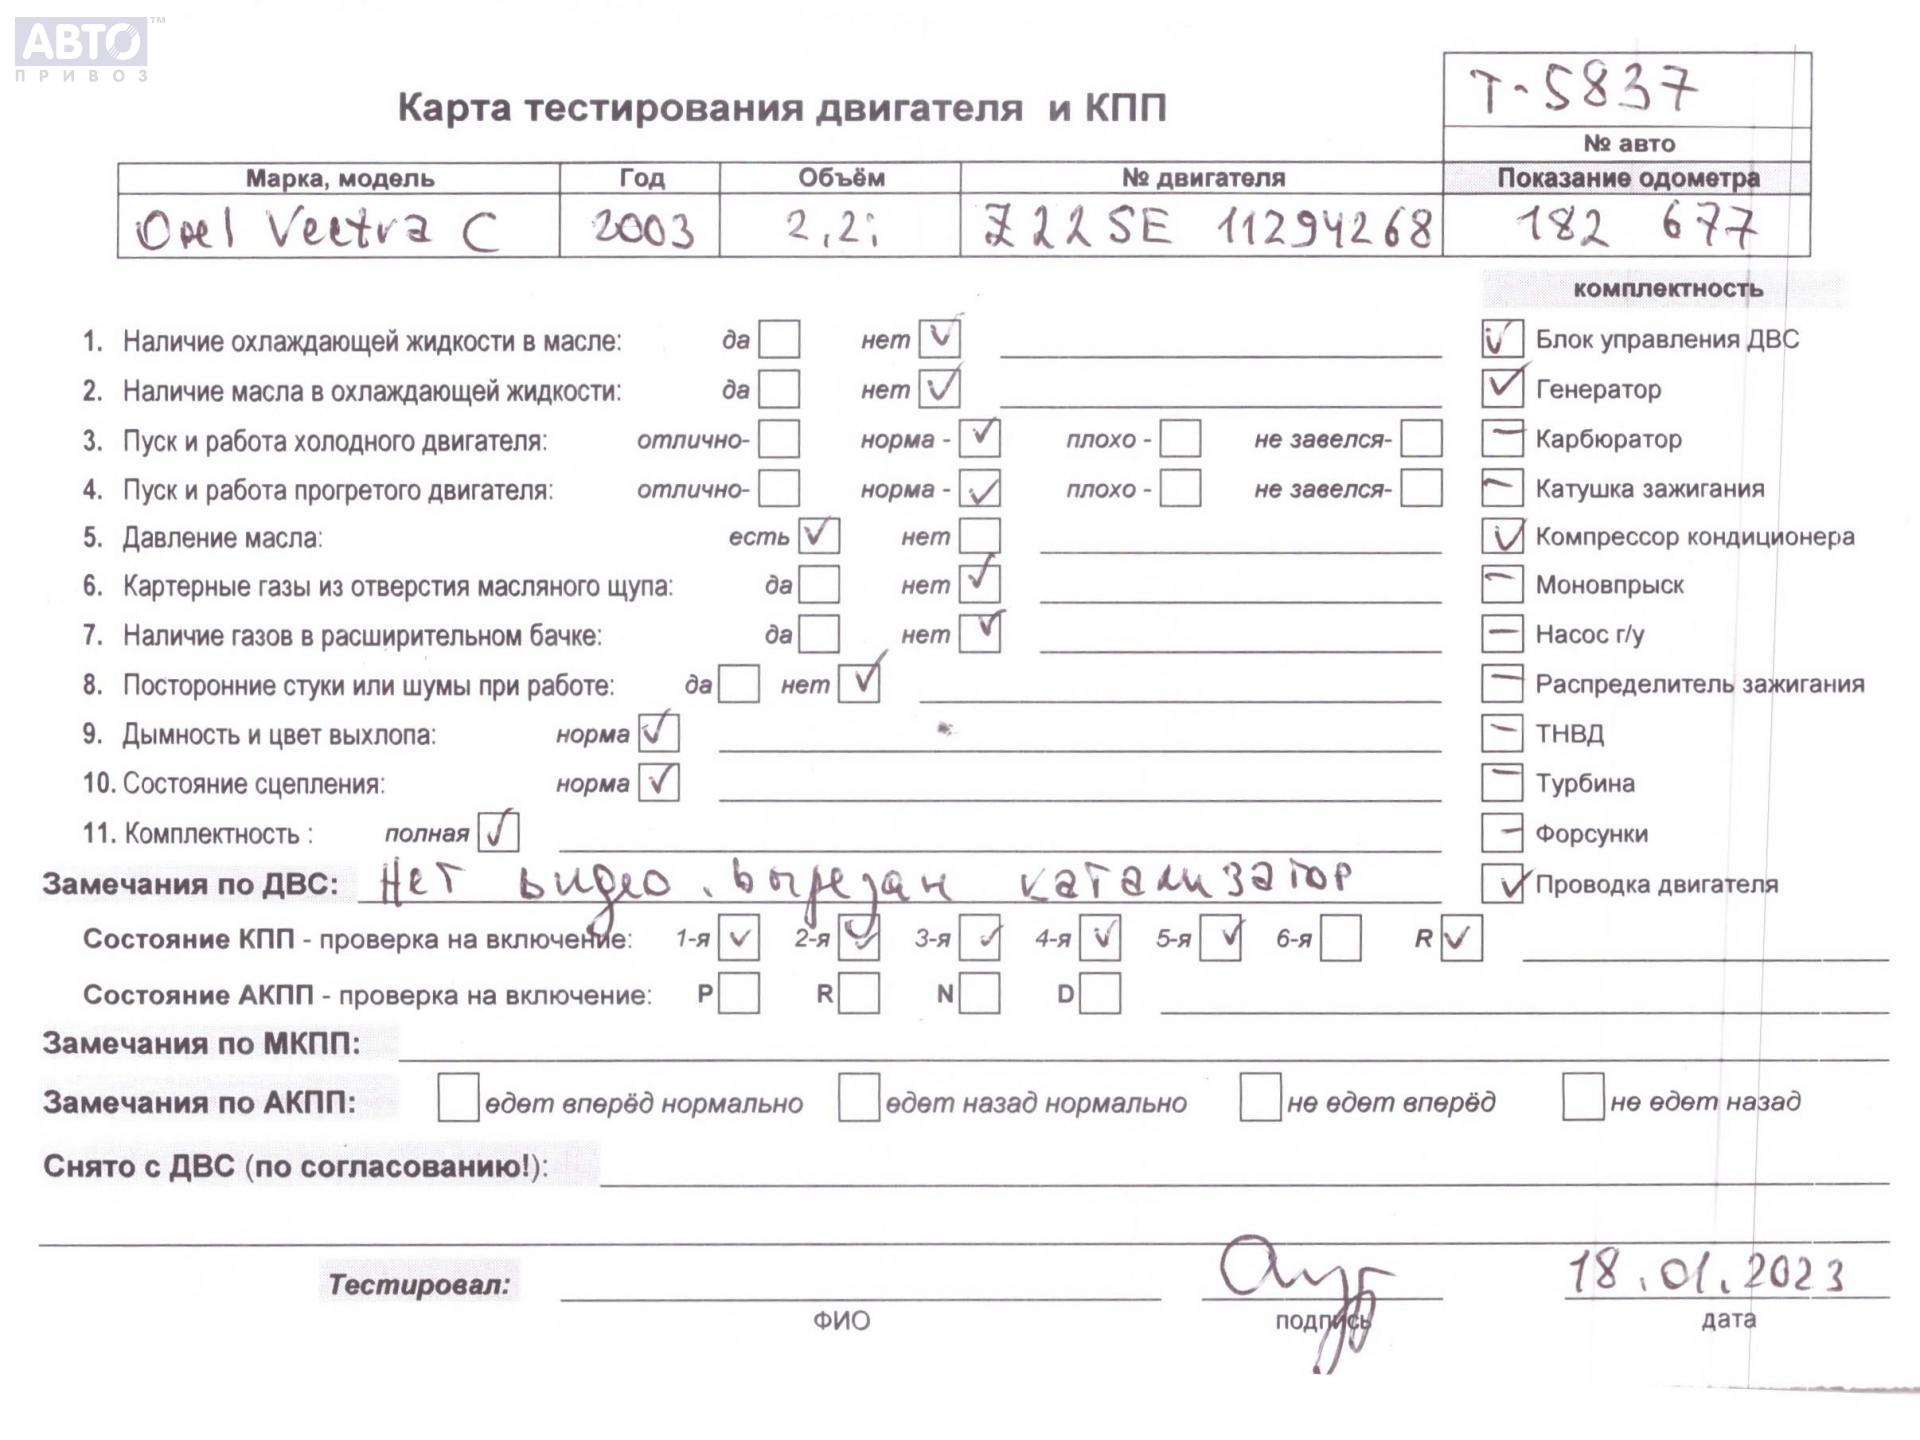 АВТО™
ПРИВОЗ
Т-5837
Карта тестирования двигателя и КПП
№ авто
Марка, модель Год Объём № двигателя Показание одометра
Opel Vectra C 2003 2,2i Z22SE 11294268 182 677
комплектность
1. Наличие охлаждающей жидкости в масле: да нет ✓ ✓ Блок управления ДВС
2. Наличие масла в охлаждающей жидкости: да нет ✓ ✓ Генератор
3. Пуск и работа холодного двигателя: отлично- норма - ✓ плохо - не завелся- — Карбюратор
4. Пуск и работа прогретого двигателя: отлично- норма - ✓ плохо - не завелся- — Катушка зажигания
5. Давление масла: есть ✓ нет ✓ Компрессор кондиционера
6. Картерные газы из отверстия масляного щупа: да нет ✓ — Моновпрыск
7. Наличие газов в расширительном бачке: да нет ✓ — Насос г/у
8. Посторонние стуки или шумы при работе: да нет ✓ — Распределитель зажигания
9. Дымность и цвет выхлопа: норма ✓ — ТНВД
10. Состояние сцепления: норма ✓ — Турбина
11. Комплектность : полная ✓ — Форсунки
Замечания по ДВС: Нет видео. вырезан катализатор ✓ Проводка двигателя
Состояние КПП - проверка на включение: 1-я ✓ 2-я ✓ 3-я ✓ 4-я ✓ 5-я ✓ 6-я R ✓
Состояние АКПП - проверка на включение: P R N D
Замечания по МКПП:
Замечания по АКПП: едет вперёд нормально едет назад нормально не едет вперёд не едет назад
Снято с ДВС (по согласованию!):
Тестировал: 18.01.2023
ФИО подпись дата